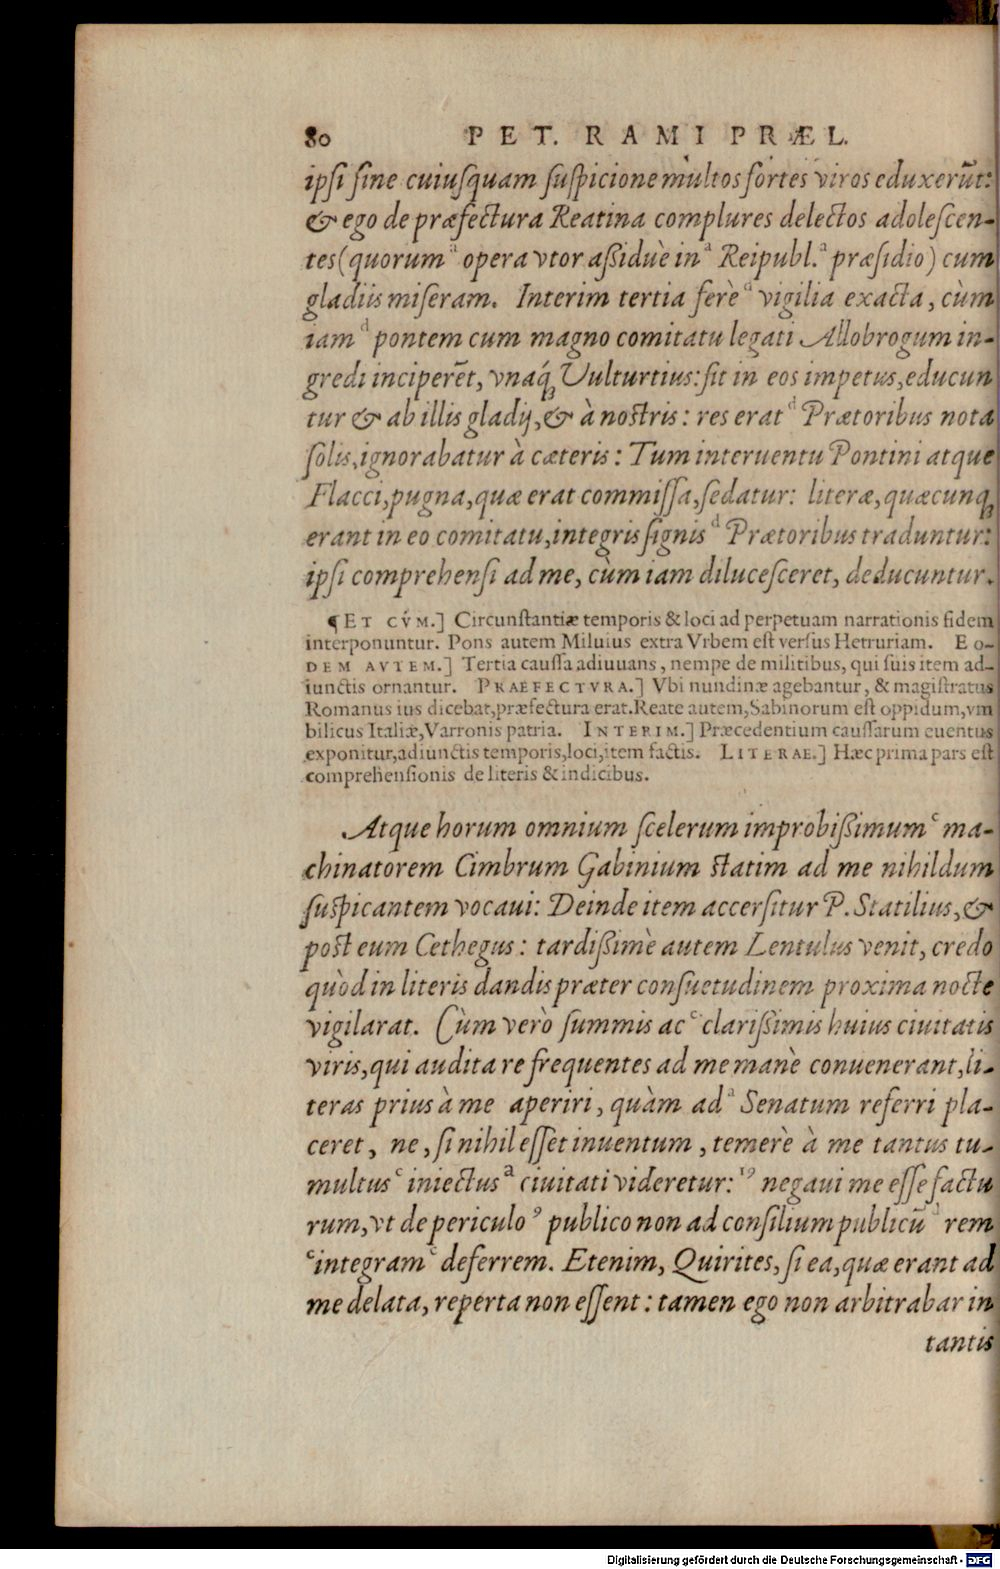 80 PET. RAMI PRÆL.
ipsi sine cuiusquam suspicione multos fortes viros eduxerũt:
& ego de præfectura Reatina complures delectos adolescen-
tes (quorum ᵃ opera vtor aßiduè in ᵃ Reipubl. ᵃ præsidio) cum
gladiis miseram. Interim tertia ferè ᵈ vigilia exacta, cùm
iam ᵈ pontem cum magno comitatu legati Allobrogum in-
gredi inciperēt, vnaq́; Vulturtius: fit in eos impetus, educun
tur & ab illis gladij, & à nostris: res erat ᵈ Prætoribus nota
solis, ignorabatur à cæteris: Tum interuentu Pontini atque
Flacci, pugna, quæ erat commissa, sedatur: literæ, quæcunq;
erant in eo comitatu, integris signis ᵈ Prætoribus traduntur:
ipsi comprehensi ad me, cùm iam dilucesceret, deducuntur.
¶ET CV́M.] Circunstantiæ temporis & loci ad perpetuam narrationis fidem
interponuntur. Pons autem Miluius extra Vrbem est versus Hetruriam. EO-
DEM AVTEM.] Tertia caussa adiuuans, nempe de militibus, qui suis item ad-
iunctis ornantur. PRAEFECTVRA.] Vbi nundinæ agebantur, & magistratus
Romanus ius dicebat, præfectura erat. Reate autem, Sabinorum est oppidum, vm
bilicus Italiæ, Varronis patria. INTERIM.] Præcedentium caussarum euentus
exponitur, adiunctis temporis, loci, item factis. LITERAE.] Hæc prima pars est
comprehensionis de literis & indicibus.
Atque horum omnium scelerum improbißimum ᶜ ma-
chinatorem Cimbrum Gabinium statim ad me nihildum
suspicantem vocaui: Deinde item accersitur P. Statilius, &
post eum Cethegus: tardißimè autem Lentulus venit, credo
quòd in literis dandis præter consuetudinem proxima nocte
vigilarat. Cùm verò summis ac ᶜ clarißimis huius ciuitatis
viris, qui audita re frequentes ad me manè conuenerant, li-
teras prius à me aperiri, quàm ad ᵃ Senatum referri pla-
ceret, ne, si nihil esset inuentum, temerè à me tantus tu-
multus ᶜ iniectus ᵃ ciuitati videretur: negaui me esse factu
rum, vt de periculo ⁹ publico non ad consilium publicũ ᵈ rem
ᶜ integram ᶜ deferrem. Etenim, Quirites, si ea, quæ erant ad
me delata, reperta non essent: tamen ego non arbitrabar in
tantis
Digitalisierung gefördert durch die Deutsche Forschungsgemeinschaft - DFG